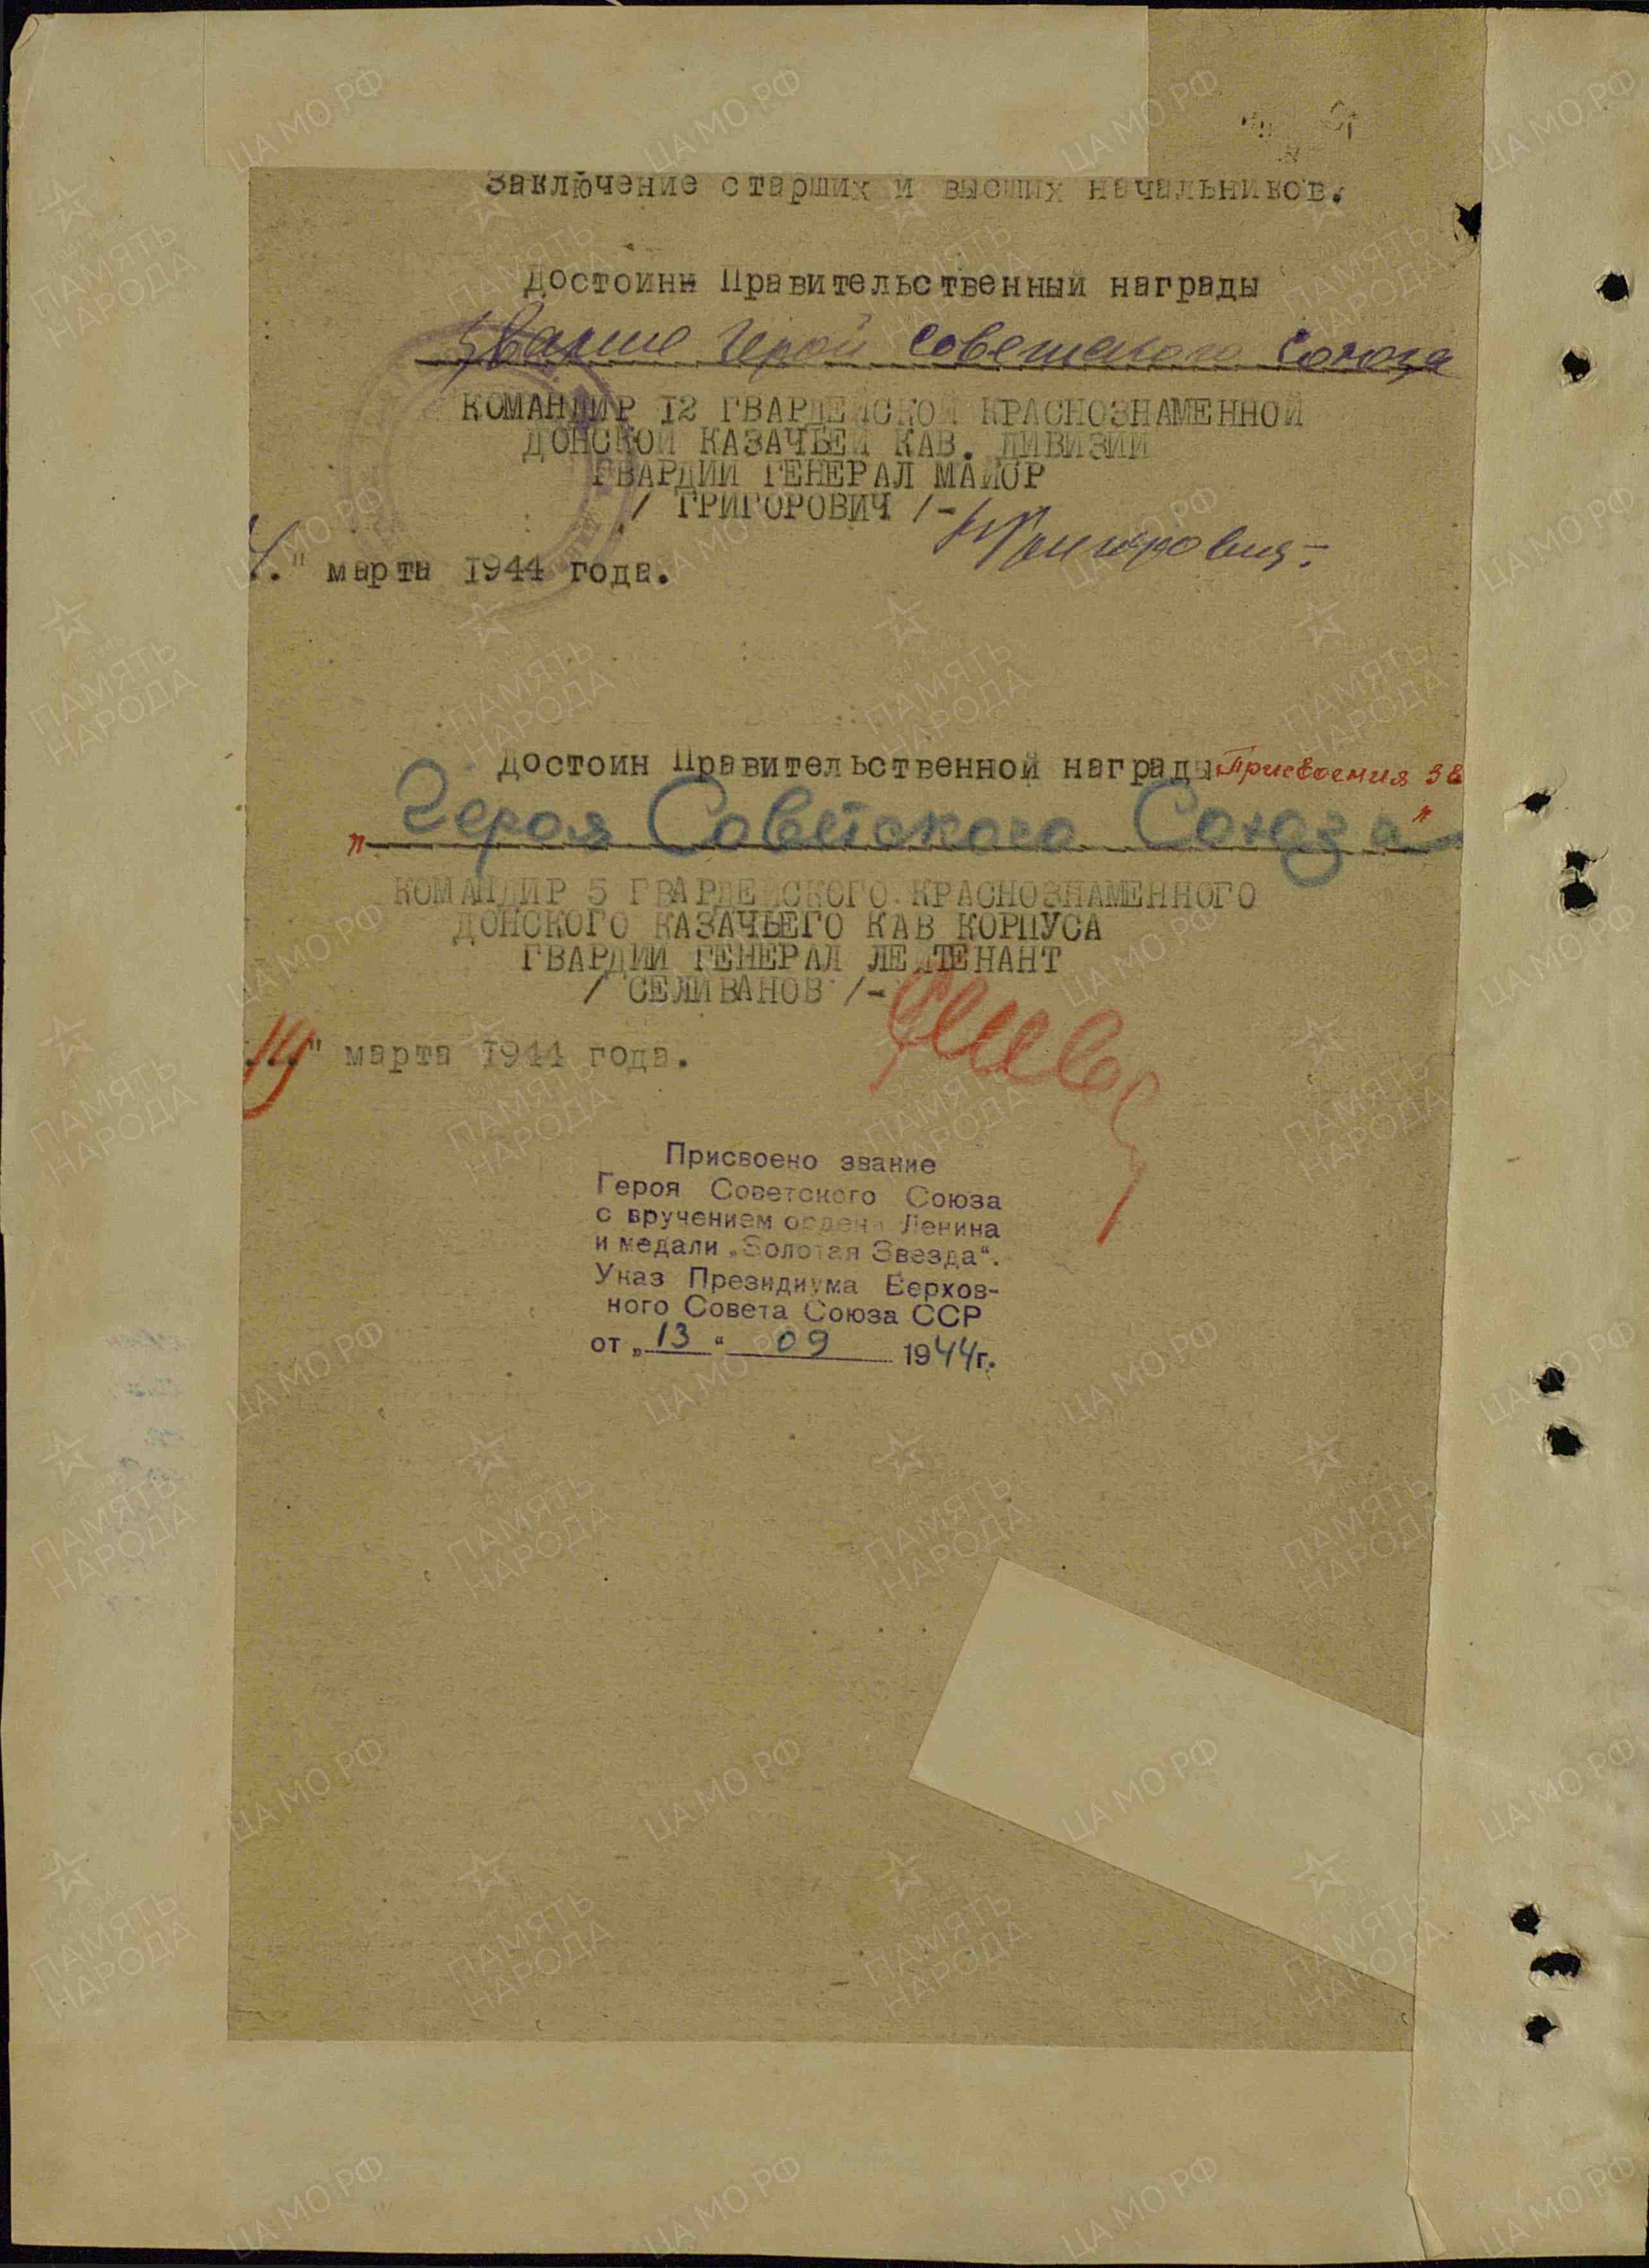 Заключение старших и высших начальников.
Достоинн Правительственный награды
звание Герой Советского Союза
КОМАНДИР 12 ГВАРДЕЙСКОЙ КРАСНОЗНАМЕННОЙ
ДОНСКОЙ КАЗАЧЬЕЙ КАВ. ДИВИЗИИ
ГВАРДИИ ГЕНЕРАЛ МАЙОР
/ ГРИГОРОВИЧ /-
" марта 1944 года.
Достоин Правительственной награды Присвоения зв
„Героя Советского Союза"
КОМАНДИР 5 ГВАРДЕЙСКОГО КРАСНОЗНАМЕННОГО
ДОНСКОГО КАЗАЧЬЕГО КАВ КОРПУСА
ГВАРДИИ ГЕНЕРАЛ ЛЕЙТЕНАНТ
/ СЕЛИВАНОВ /-
19" марта 1944 года.
Присвоено звание
Героя Советского Союза
с вручением ордена Ленина
и медали „Золотая Звезда“.
Указ Президиума Верхов-
ного Совета Союза ССР
от „13“ 09 1944г.
ЦА МО РФ
ПАМЯТЬ
НАРОДА